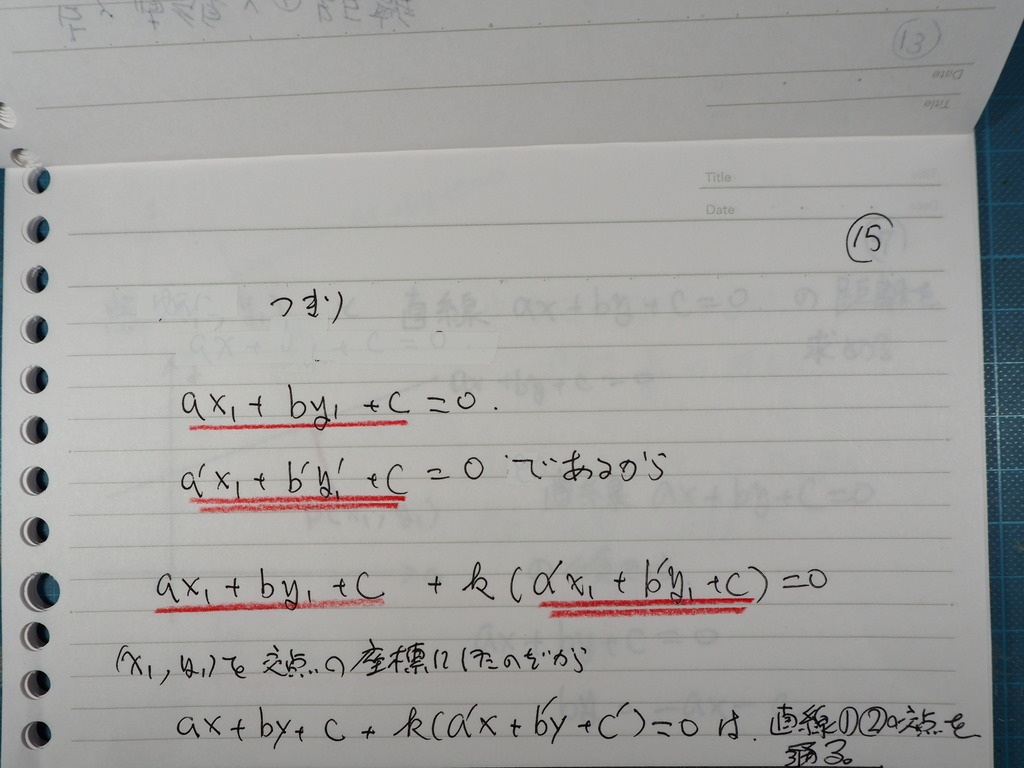 Title
Date
⑮
つまり
ax₁ + by₁ + c = 0.
a'x₁ + b'y₁' + c = 0 であるから
ax₁ + by₁ + c + k(a'x₁ + b'y₁ + c) = 0
(x₁, y₁)を交点の座標にしたのだから
ax + by + c + k(a'x + b'y + c') = 0 は、直線①②の交点を
通る。